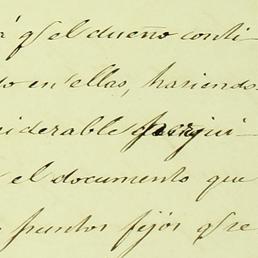 á qe el dueño conti-
do en ellas, haciendo-
siderable perjui-
el documento que
puntos fijos qe se